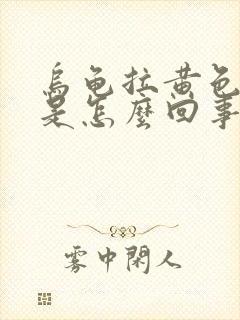 烏龜拉黃色
是怎麼回事
雾中閑人